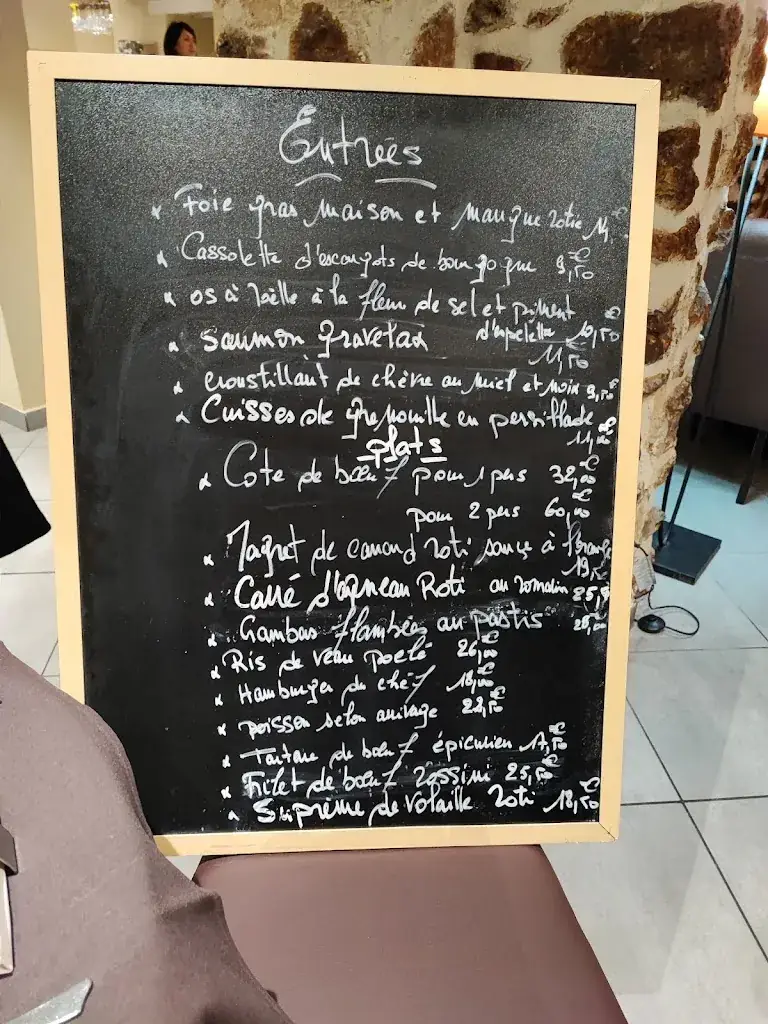 Entrées
Foie gras maison et mangue rotie 14,€
Cassolette d'escargots de bourgogne 9,50€
os à moëlle à la fleur de sel et piment
d'espelette 10,50€
Saumon gravelax 11,50
croustillant de chèvre au miel et noix 9,50€
Cuisses de grenouille en persillade
11,00€
plats
Cote de bœuf pour 1 pers 32,00€
pour 2 pers 60,00€
Magret de canard roti sauce à l'orange
19,€
Carré d'agneau Roti au romarin 25,50
Gambas flambées au pastis 28,00
Ris de veau poelé 26,00€
Hamburger du chef 18,00€
poisson selon arrivage 22,50€
Tartare de bœuf épicurien 17,50€
Filet de bœuf rossini 25,50€
Suprème de volaille roti 18,50€